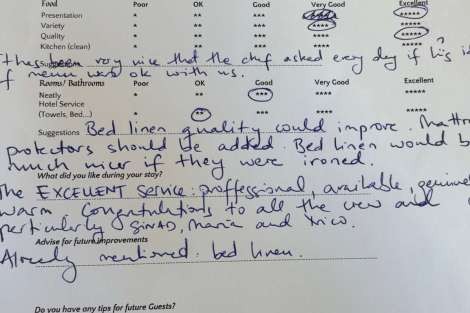 Food Poor OK Good Very Good Excellent
Presentation * ** *** **** *****
Variety * ** *** **** *****
Quality * ** *** **** *****
Kitchen (clean) * ** *** **** *****
very nice that the chef asked every day if his
menu was ok with us.
Rooms/ Bathrooms Poor OK Good Very Good Excellent
Neatly * ** *** **** *****
Hotel Service
(Towels, Bed...) * ** *** **** *****
Suggestions Bed linen quality could improve. Mattr
protectors should be added. Bed linen would b
much nicer if they were ironed.
What did you like during your stay?
The EXCELLENT service: proffessional, available, genuine
warm. Congratulations to all the crew and
perticularly SINAD, Maria and
Advise for future improvements
Already mentioned: bed linen.
Do you have any tips for future Guests?